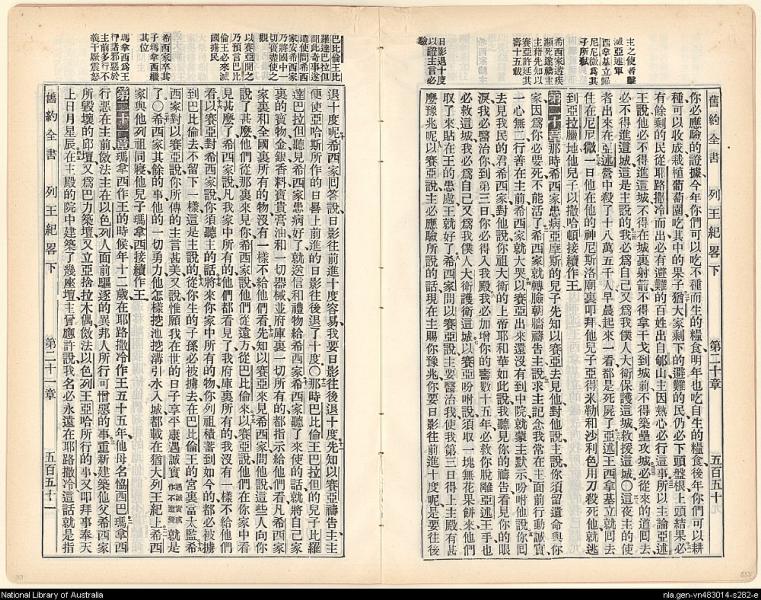 舊約全書 列王紀畧下 第二十章 五百五十
主之使者擊
滅亞述軍
西拿基立歸
尼尼微爲其
子所弒
希西家遘疾
瀕死遂禱其
主藉先知以
賽亞許延其
壽十五載
日影退十度
以證主言必
驗
你必應驗的證據今年你們可以吃不種而生的糧食明年也吃自生的糧食後年你們可以耕
種可以收成栽植葡萄園吃其中的果子猶大家剩下的避難的民仍必下頭盤根上頭結果必
有餘剩的民從耶路撒冷而出必有避難的百姓出自郇山主因熱心必行這事所以主論亞述
王說他必不得進這城不得在城裏射箭不得拿干戈到城前不得築壘攻城必從來的道囘去
必不得進這城這是主說的我必爲自己又爲我僕人大衛保護這城救援這城〇這夜主的使
者出來在亞述營中殺了十八萬五千人早晨起來一看都是死屍了亞述王西拿基立就囘去
住在尼尼微一日他在他的神尼斯洛廟裏叩拜他兒子亞得米勒和沙利色用刀殺死他就逃
到亞拉臘地他兒子以撒哈頓接續作王
第二十章那時希西家患病亞麽斯的兒子先知以賽亞去見他對他說主說你須留遺命與你
家因爲你必要死不能活了希西家就轉臉朝牆禱告主說求主記念我常在主面前行動誠實
一心無二行善在主前希西家就大哭以賽亞出來還沒有到中院就蒙主默示吩咐他說你囘
去見我民的君希西家對他說你祖大衛的上帝耶和華如此說我聽見你的禱告看見你的眼
淚我必醫治你到第三日你必得入我殿我必加增你的壽數十五年必救你脫離亞述王手也
必救這城我必爲自己又爲我僕人大衛護衛這城以賽亞吩咐說須取一塊無花果餅來他們
取了來貼在王的患處王就好了希西家問以賽亞說主要醫治我使我第三日得上主殿有甚
麽豫兆呢以賽亞說主必應驗所說的話現在主賜你豫兆你要日影往前進十度呢是要往後
巴比倫王比
羅達巴拉但
聞此奇事遂
遣使問希西
家安希西家
乃將國中一
切寶盡使之
觀
以賽亞聞之
乃預言巴比
倫王必來滅
國擄民
希西家卒其
子瑪拿西繼
其位
瑪拿西爲王
行諸邪惡於
主前多行不
義干厥震怒
退十度呢希西家囘答說日影往前進十度容易我要日影往後退了十度先知以賽亞禱告主主
便使亞哈斯所作的日晷上前進的日影往後退了十度〇那時巴比倫王巴拉但的兒子比羅
達巴拉但聽見希西家患病好了就送信和禮物給希西家希西家聽了來使的話就將自己家
裏的寶物金銀香料寶貴膏油和一切器械並府庫裏一切所有的都指示給他們看凡希西家
家裏和全國裏所有的物沒有一樣不給他們看先知以賽亞來見希西家問他說這些人向你
說了甚麽他們從那裏來見你希西家說他們從遠方從巴比倫來以賽亞說他們在你家中看
見甚麽了希西家說凡我家中所有的他們都看見了我府庫裏所有的我沒有一樣不給他們
看以賽亞對希西家說你須聽主的話將來你家中所有的物你列祖積蓄到如今的都必被擄
到巴比倫去不留下一樣這是主說的從你生的子孫必被擄去在巴比倫王的宮裏當太監希
西家對以賽亞說你所傳的主言甚美又說惟願我在世的日子享平康遇誠實就是
了〇希西家其餘的事他的一切勇力他怎樣挖池挖溝引水入城都載在猶大列王紀上希西
家與他列祖同寢他兒子瑪拿西接續作王
第二十一章瑪拿西作王的時候年十二歲在耶路撒冷作王五十五年他母名協西巴瑪拿西
行惡在主前傚法主在以色列人面前驅逐的異邦人所行可憎惡的事重新建築他父希西家
所毀壞的邱壇又爲巴力築壇又立亞捨拉木偶傚法以色列王亞哈所行的事又叩拜事奉天
上日月星辰在主殿的院中建築了幾座壇主曾應許說我名必永遠在耶路撒冷這話就是指
舊約全書 列王紀畧下 第二十一章 五百五十一
National Library of Australia
nla.gen-vn483014-s282-e